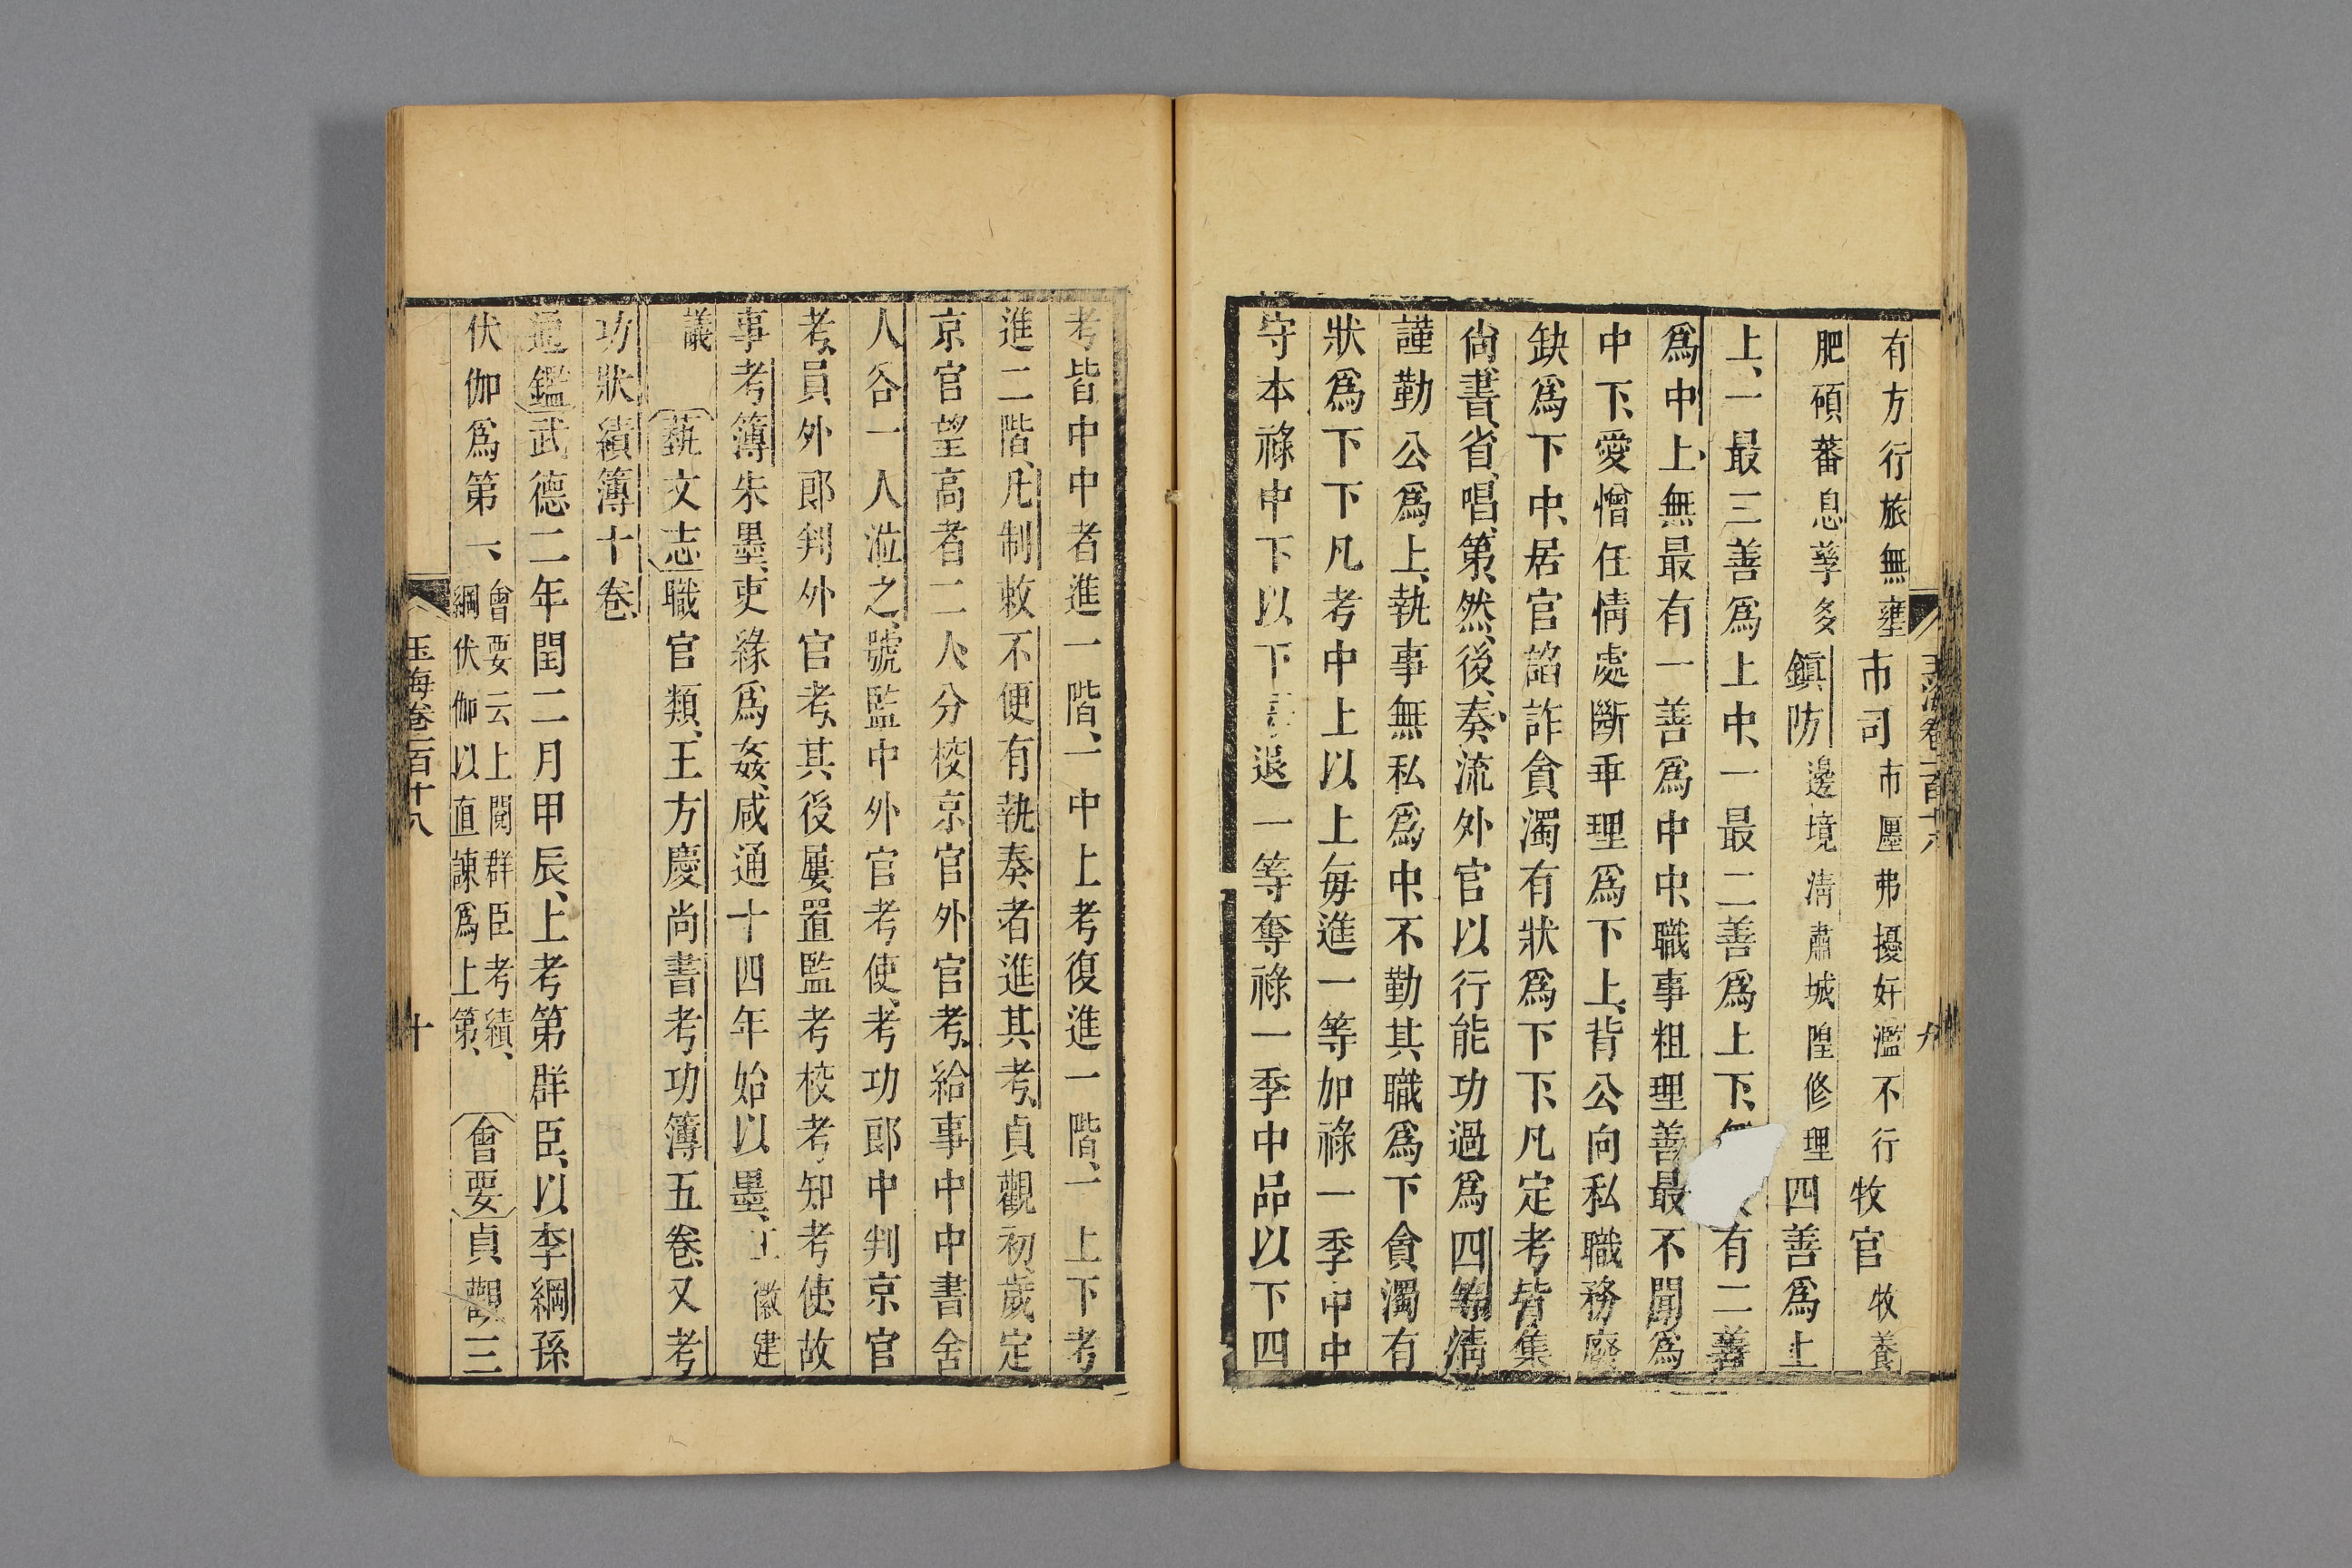 有方行旅無壅市司市廛弗擾奸濫不行牧官牧養
肥碩蕃息孳多鎮防邊境清肅城隍修理四善爲上
上、一最三善爲上中、一最二善爲上下、無有二善
爲中上、無最有一善爲中中、職事粗理善最不聞爲
中下、愛憎任情處斷乖理爲下上、背公向私職務廢
缺爲下中、居官諂詐貪濁有狀爲下下、凡定考皆集
尚書省、唱第、然後奏、流外官以行能功過爲四等清
謹勤公爲上、執事無私爲中、不勤其職爲下貪濁有
狀爲下下凡考中上以上每進一等加祿一季中中
守本祿中下以下退一等奪祿一季中品以下四
考皆中中者進一階、一中上考復進一階、一上下考
進二階、凡制敕不便有執奏者進其考、貞觀初歲定
京官望高者二人、分校京官外官考、給事中中書舍
人各一人涖之、號監中外官考使、考功郎中判京官
考、員外郎判外官考、其後屢置監考校考知考使、故
事考簿朱墨、吏緣爲姦、咸通十四年始以墨、王徽建
議藝文志職官類、王方慶尚書考功簿五卷、又考
功狀績簿十卷、
通鑑武德二年閏二月甲辰、上考第群臣、以李綱孫
伏伽爲第一、會要云上閱群臣考績、綱伏伽以直諫爲上第、會要貞觀三
玉海卷一百十八
十
玉海卷一百十八
九